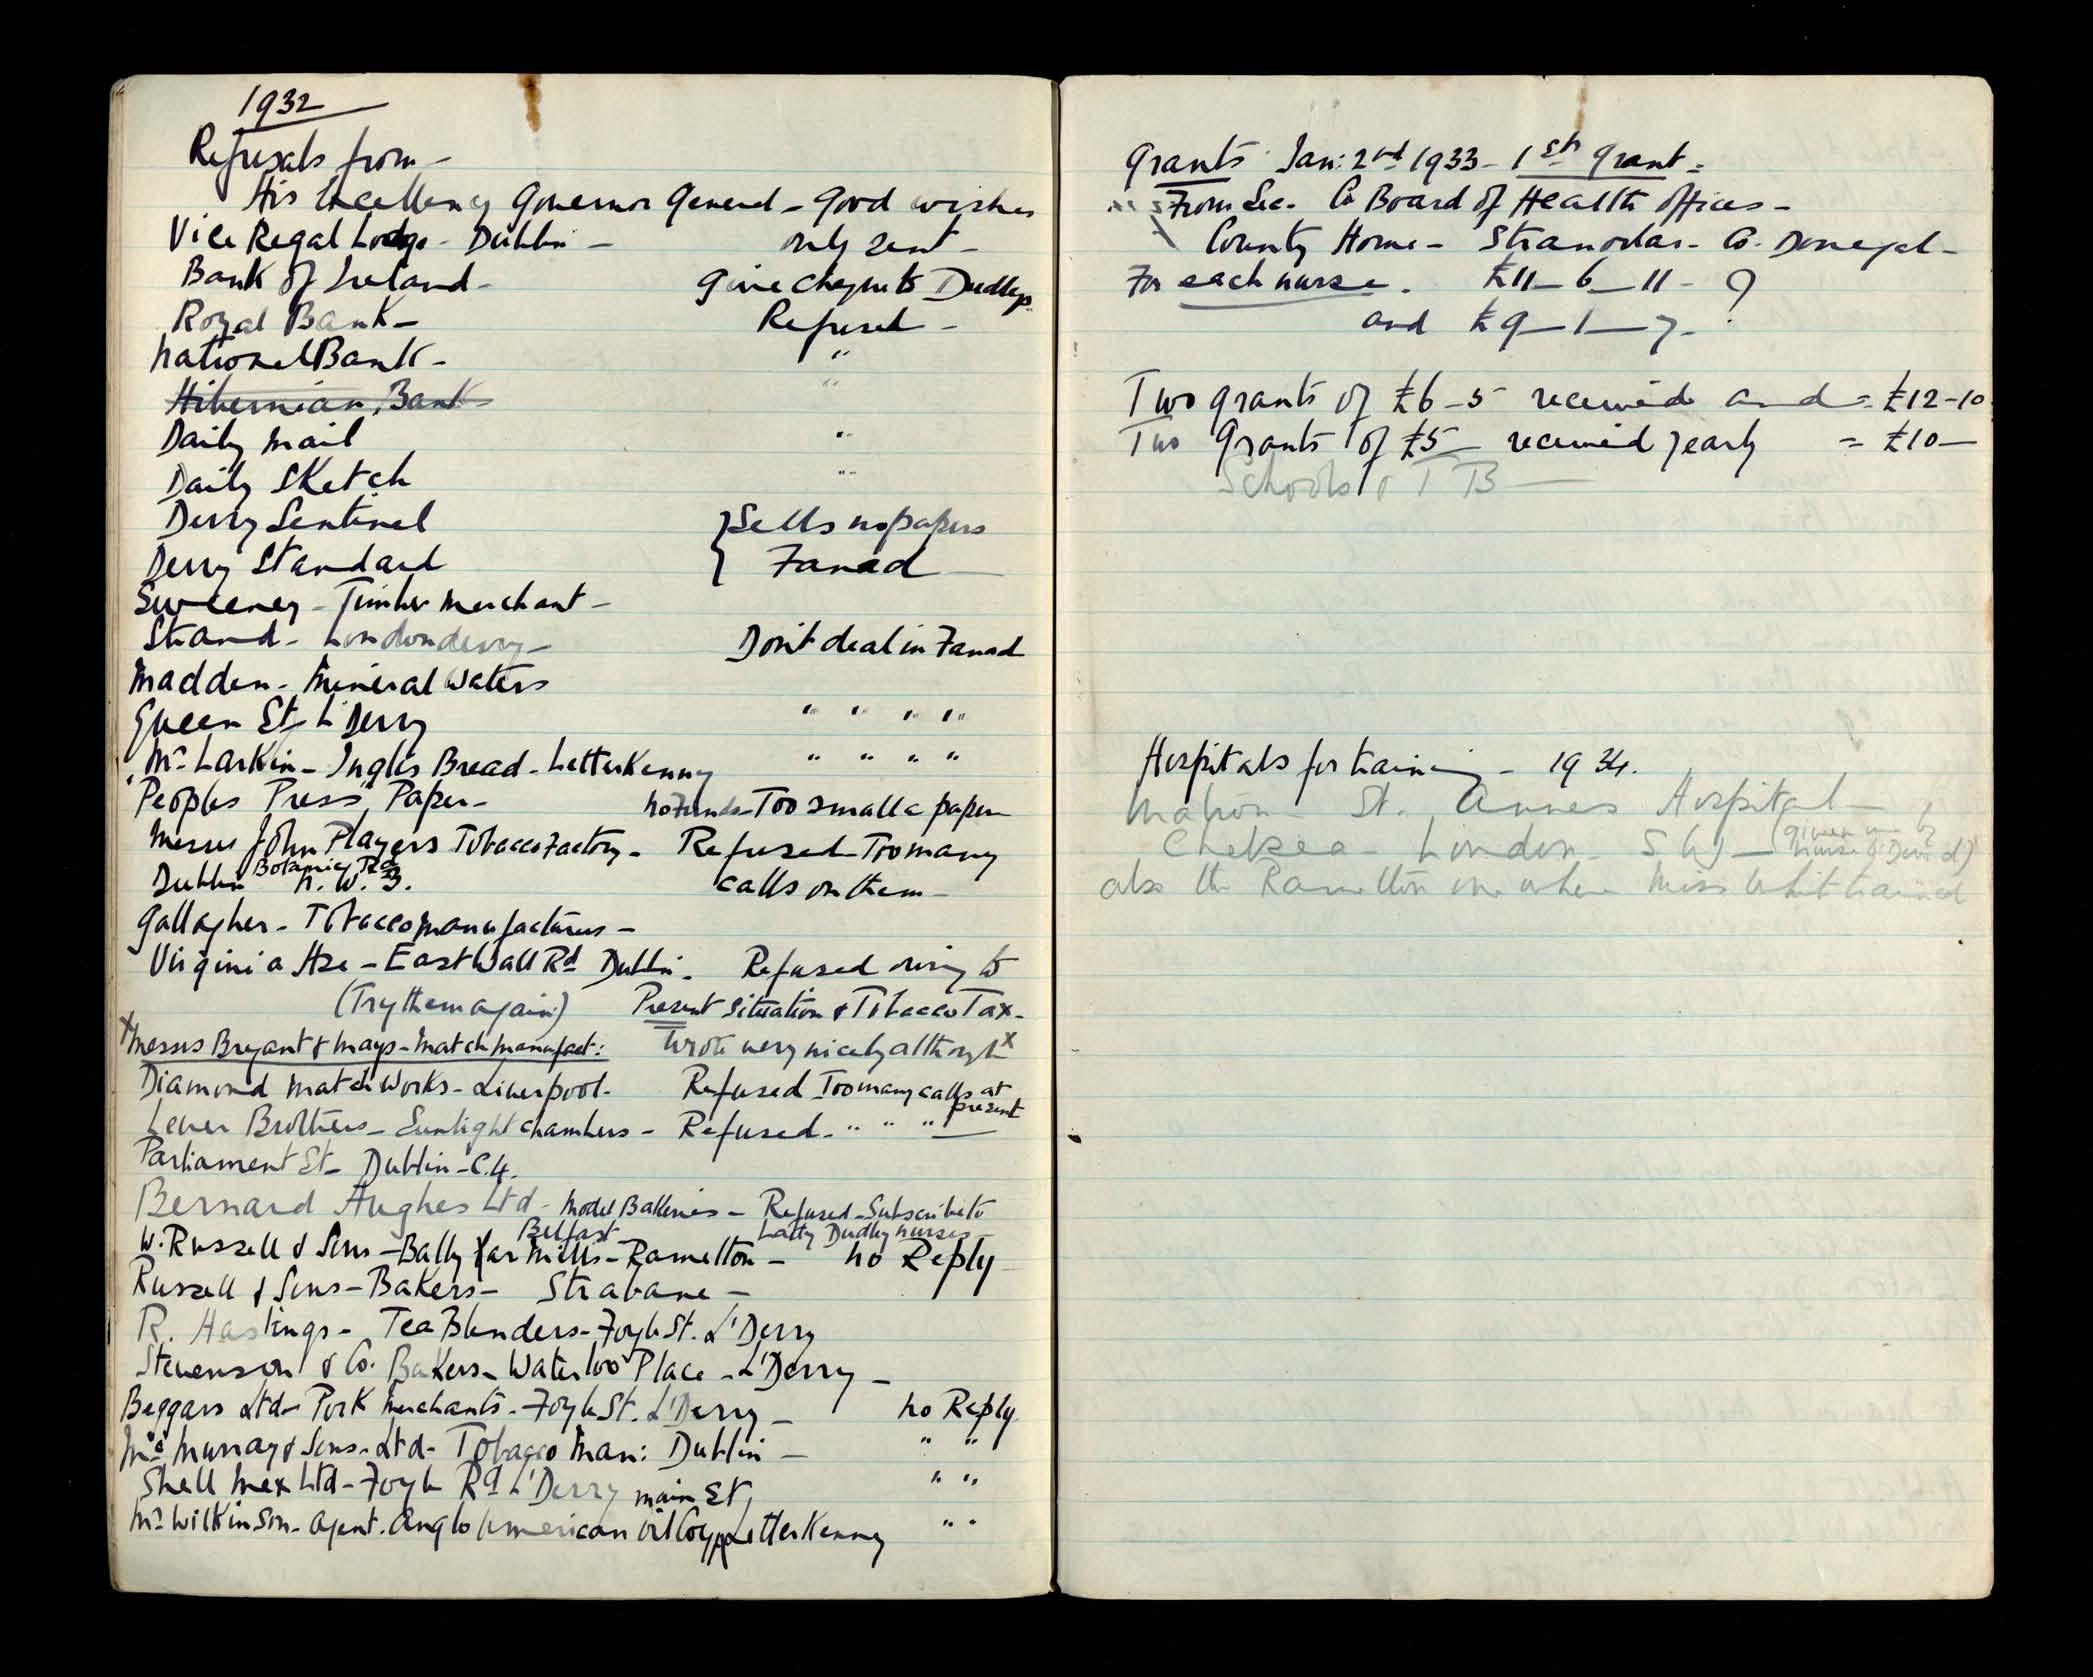 1932
Refusals from -
His Excellency Governor General - Good wishes
Vice Regal Lodge - Dublin - only sent -
Bank of Ireland - Give cheque to Dudleys
Royal Bank - Refused -
National Bank - "
Hibernian Bank "
Daily Mail "
Daily Sketch "
Derry Sentinel } Sells no papers
Derry Standard } Fanad
Sweeney - Timber Merchant -
Strand - Londonderry - Don't deal in Fanad
Madden - Mineral Waters
Queen St. L'Derry " " " "
Mr Larkin - Inglis Bread - Letterkenny " " " "
Peoples Press Paper - no Funds - Too small a paper
Messrs John Players Tobacco Factory - Refused - Too many
Botanic Rd
Dublin N.W.3. calls on them -
Gallagher - Tobacco manufacturers -
Virginia Hse - East Wall Rd Dublin - Refused owing to
(Try them again) Present situation & Tobacco Tax -
x Messrs Bryant & Mays - Match manufact: Wrote very nicely although x
Diamond Match Works - Liverpool - Refused Too many calls at
present
Lever Brothers - Sunlight Chambers - Refused - " " "
Parliament St - Dublin - C.4.
Bernard Hughes Ltd - Model Bakeries - Refused - Subscribe to
Belfast - Lady Dudley nurses -
W. Russell & Sons - Bally Mills - Ramelton - no Reply
Russell & Sons - Bakers - Strabane -
R. Hastings - Tea Blenders - Foyle St. L'Derry
Stevenson & Co. Bakers - Waterloo Place - L'Derry -
Beggars Ltd - Pork Merchants - Foyle St. L'Derry - no Reply
Murray & Sons - Ltd - Tobacco Man: Dublin - " "
Shell Mex Ltd - Foyle Rd L'Derry " "
main St,
Mr Wilkinson - Agent. Anglo American Oil Coy Letterkenny " "
Grants Jan: 2nd 1933 - 1st Grant =
From Sec. Co Board of Health Offices -
County Home - Stranorlar - Co. Donegal -
For each nurse. £11 - 6 - 11 - ?
and £9 - 1 - 7 - ?
Two grants of £6 - 5 received and = £12 - 10
Two Grants of £5 - received yearly = £10 -
Schools & TB -
Hospitals for training - 1934.
Matron - St. Annes Hospital -
Chelsea - London - S W - (given me by
nurse David)
also the Ramelton one where Miss White trained